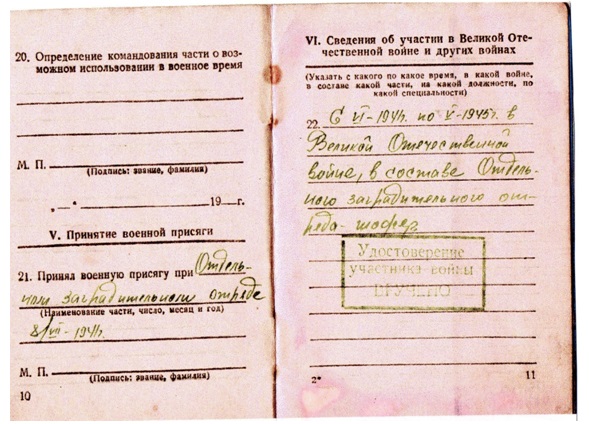 20. Определение командования части о воз-
можном использовании в военное время
М. П.
(Подпись: звание, фамилия)
„ — “ 19 — г.
V. Принятие военной присяги
21. Принял военную присягу при Отдель-
ном заградительном отряде
(Наименование части, число, месяц и год)
8/VII-1941г.
М. П.
(Подпись: звание, фамилия)
10
VI. Сведения об участии в Великой Оте-
чественной войне и других войнах
(Указать с какого по какое время, в какой войне,
в составе какой части, на какой должности, по
какой специальности)
22. С VI-1941г. по V-1945г. в
Великой Отечественной
войне, в составе Отдель-
ного заградительного от-
ряда - шофер
Удостоверение
участника войны
ВРУЧЕНО
2*
11